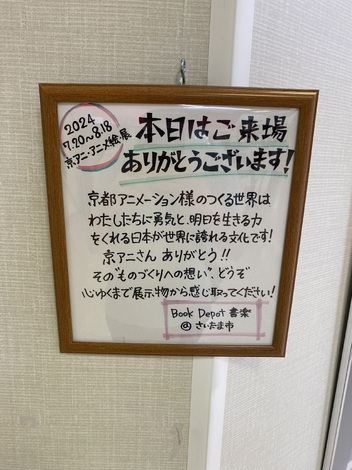 2024
7.20~8.18
京アニ・アニメ絵・展
本日はご来場
ありがとうございます!
京都アニメーション様のつくる世界は
わたしたちに勇気と、明日を生きる力
をくれる日本が世界に誇れる文化です!
京アニさん ありがとう!!
その"ものづくりへの想い"、どうぞ
心ゆくまで展示物から感じ取ってください!
Book Depot 書楽
@さいたま市